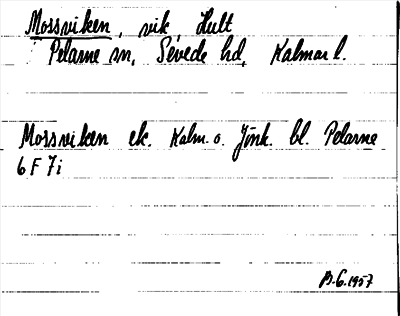 Mossviken, vik, Hult
Pelarne sn, Sevede hd, Kalmar l.
Mossviken ek. Kalm. o. Jönk. bl. Pelarne
6 F 7i
B.G. 1957